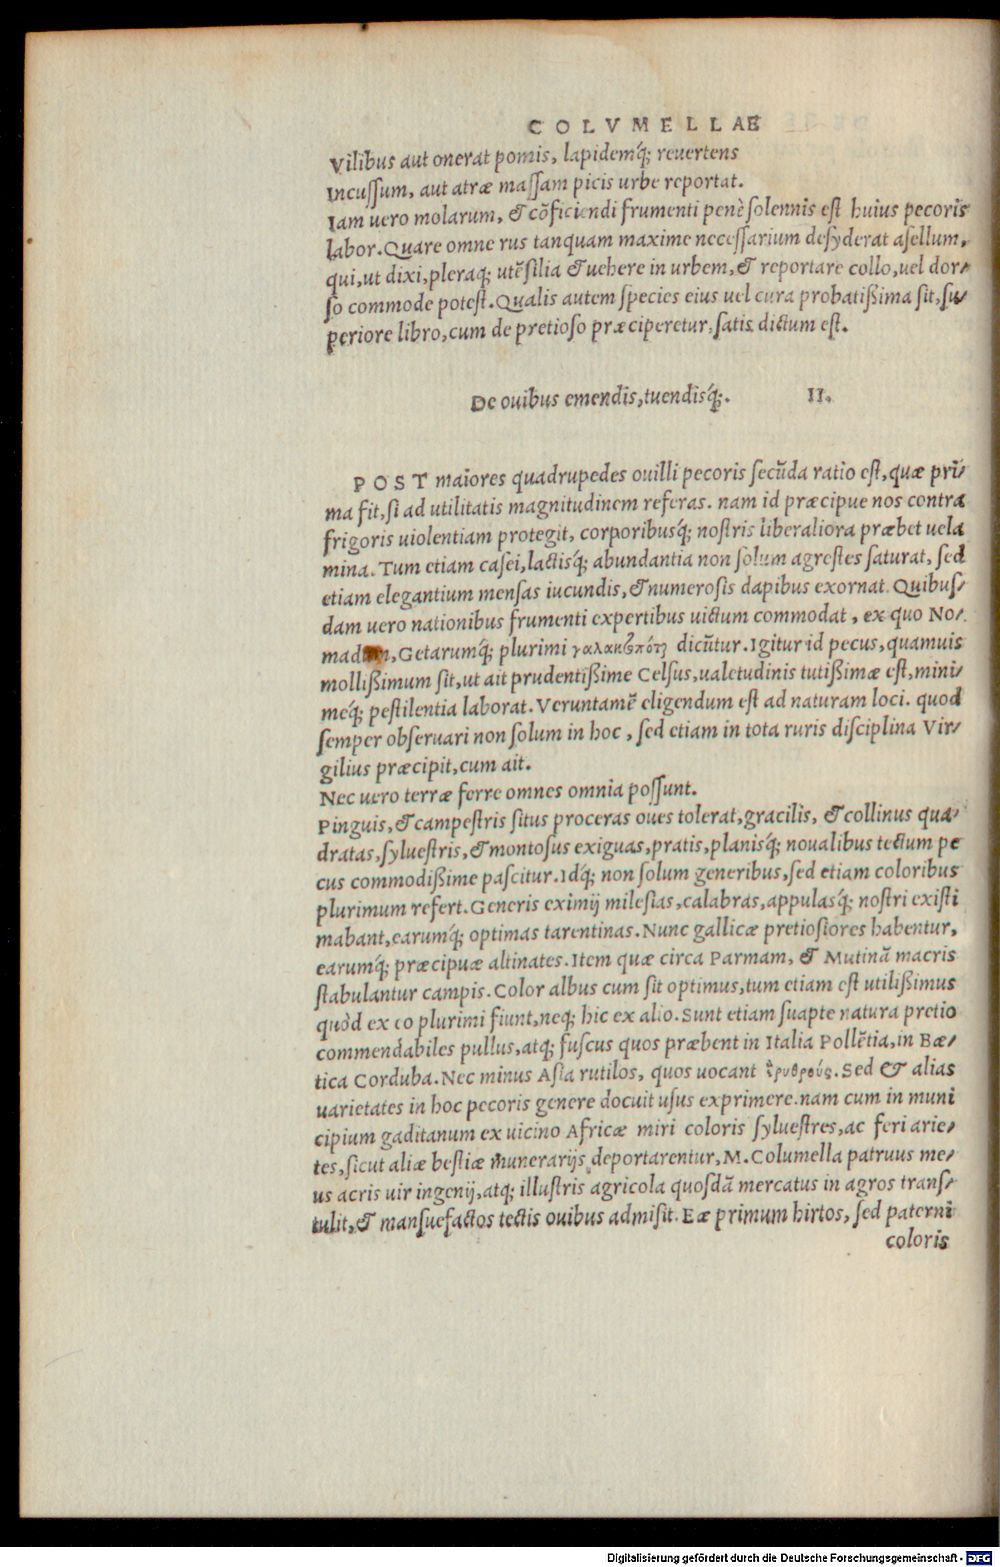 COLVMELLAE
Vilibus aut onerat pomis, lapidemq́; reuertens
Incussum, aut atræ massam picis urbe reportat.
Iam uero molarum, & cõficiendi frumenti penè solennis est huius pecoris
labor. Quare omne rus tanquam maxime necessarium desyderat asellum,
qui, ut dixi, pleraq; utẽsilia & uehere in urbem, & reportare collo, uel dor-
so commode potest. Qualis autem species eius uel cura probatißima sit, su-
periore libro, cum de pretioso præciperetur, satis dictum est.
De ouibus emendis, tuendisq́;. II.
POST maiores quadrupedes ouilli pecoris secũda ratio est, quæ pri-
ma fit, si ad utilitatis magnitudinem referas. nam id præcipue nos contra
frigoris uiolentiam protegit, corporibusq́; nostris liberaliora præbet uela
mina. Tum etiam casei, lactisq́; abundantia non solum agrestes saturat, sed
etiam elegantium mensas iucundis, & numerosis dapibus exornat. Quibus-
dam uero nationibus frumenti expertibus uictum commodat, ex quo No-
madum, Getarumq́; plurimi γαλακτοπόται dicũtur. Igitur id pecus, quamuis
mollißimum sit, ut ait prudentißime Celsus, ualetudinis tutißimæ est, mini-
meq́; pestilentia laborat. Veruntamẽ eligendum est ad naturam loci. quod
semper obseruari non solum in hoc, sed etiam in tota ruris disciplina Vir-
gilius præcipit, cum ait.
Nec uero terræ ferre omnes omnia possunt.
Pinguis, & campestris situs proceras oues tolerat, gracilis, & collinus qua-
dratas, syluestris, & montosus exiguas, pratis, planisq́; noualibus tectum pe
cus commodißime pascitur. Idq́; non solum generibus, sed etiam coloribus
plurimum refert. Generis eximij milesias, calabras, appulasq́; nostri existi
mabant, earumq́; optimas tarentinas. Nunc gallicæ pretiosiores habentur,
earumq́; præcipuæ altinates. Item quæ circa Parmam, & Mutinã macris
stabulantur campis. Color albus cum sit optimus, tum etiam est utilißimus
quòd ex eo plurimi fiunt, neq; hic ex alio. Sunt etiam suapte natura pretio
commendabiles pullus, atq; fuscus quos præbent in Italia Pollẽtia, in Bæ-
tica Corduba. Nec minus Asia rutilos, quos uocant ἐρυθρούς. Sed & alias
uarietates in hoc pecoris genere docuit usus exprimere. nam cum in muni
cipium gaditanum ex uicino Africæ miri coloris syluestres, ac feri arie-
tes, sicut aliæ bestiæ munerarijs deportarentur, M. Columella patruus me-
us acris uir ingenij, atq; illustris agricola quosdã mercatus in agros trans-
tulit, & mansuefactos tectis ouibus admisit. Eæ primum hirtos, sed paterni
coloris
Digitalisierung gefördert durch die Deutsche Forschungsgemeinschaft - DFG